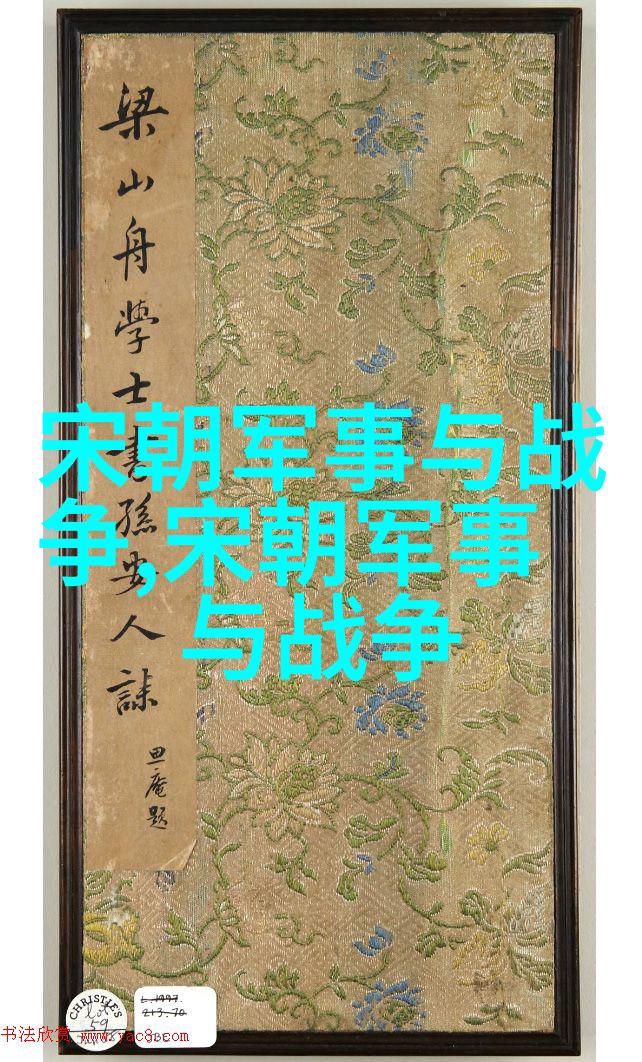 梁山舟學士書孫安人誄
思庵題
宋朝军事与战
争,宋朝军事
与战争
CHRISTIE'S
lot
59
L.1997.
213.70
书法欣赏 www.yac8.com